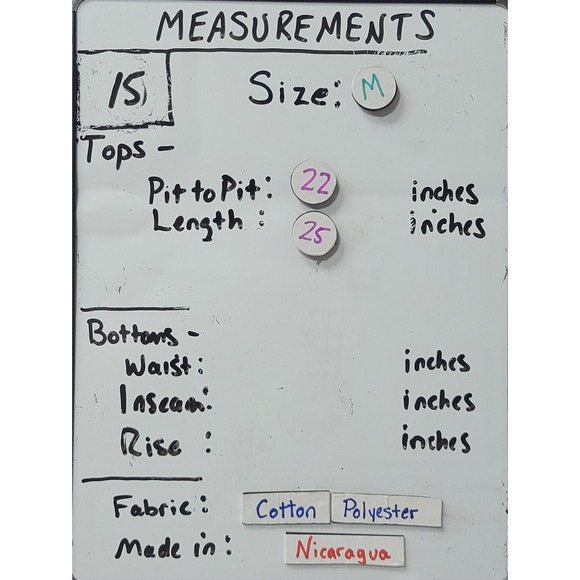 MEASUREMENTS
15 Size: M
Tops -
Pit to Pit: 22 inches
Length: 25 inches
Bottoms -
Waist: inches
Inseam: inches
Rise: inches
Fabric: Cotton Polyester
Made in: Nicaragua